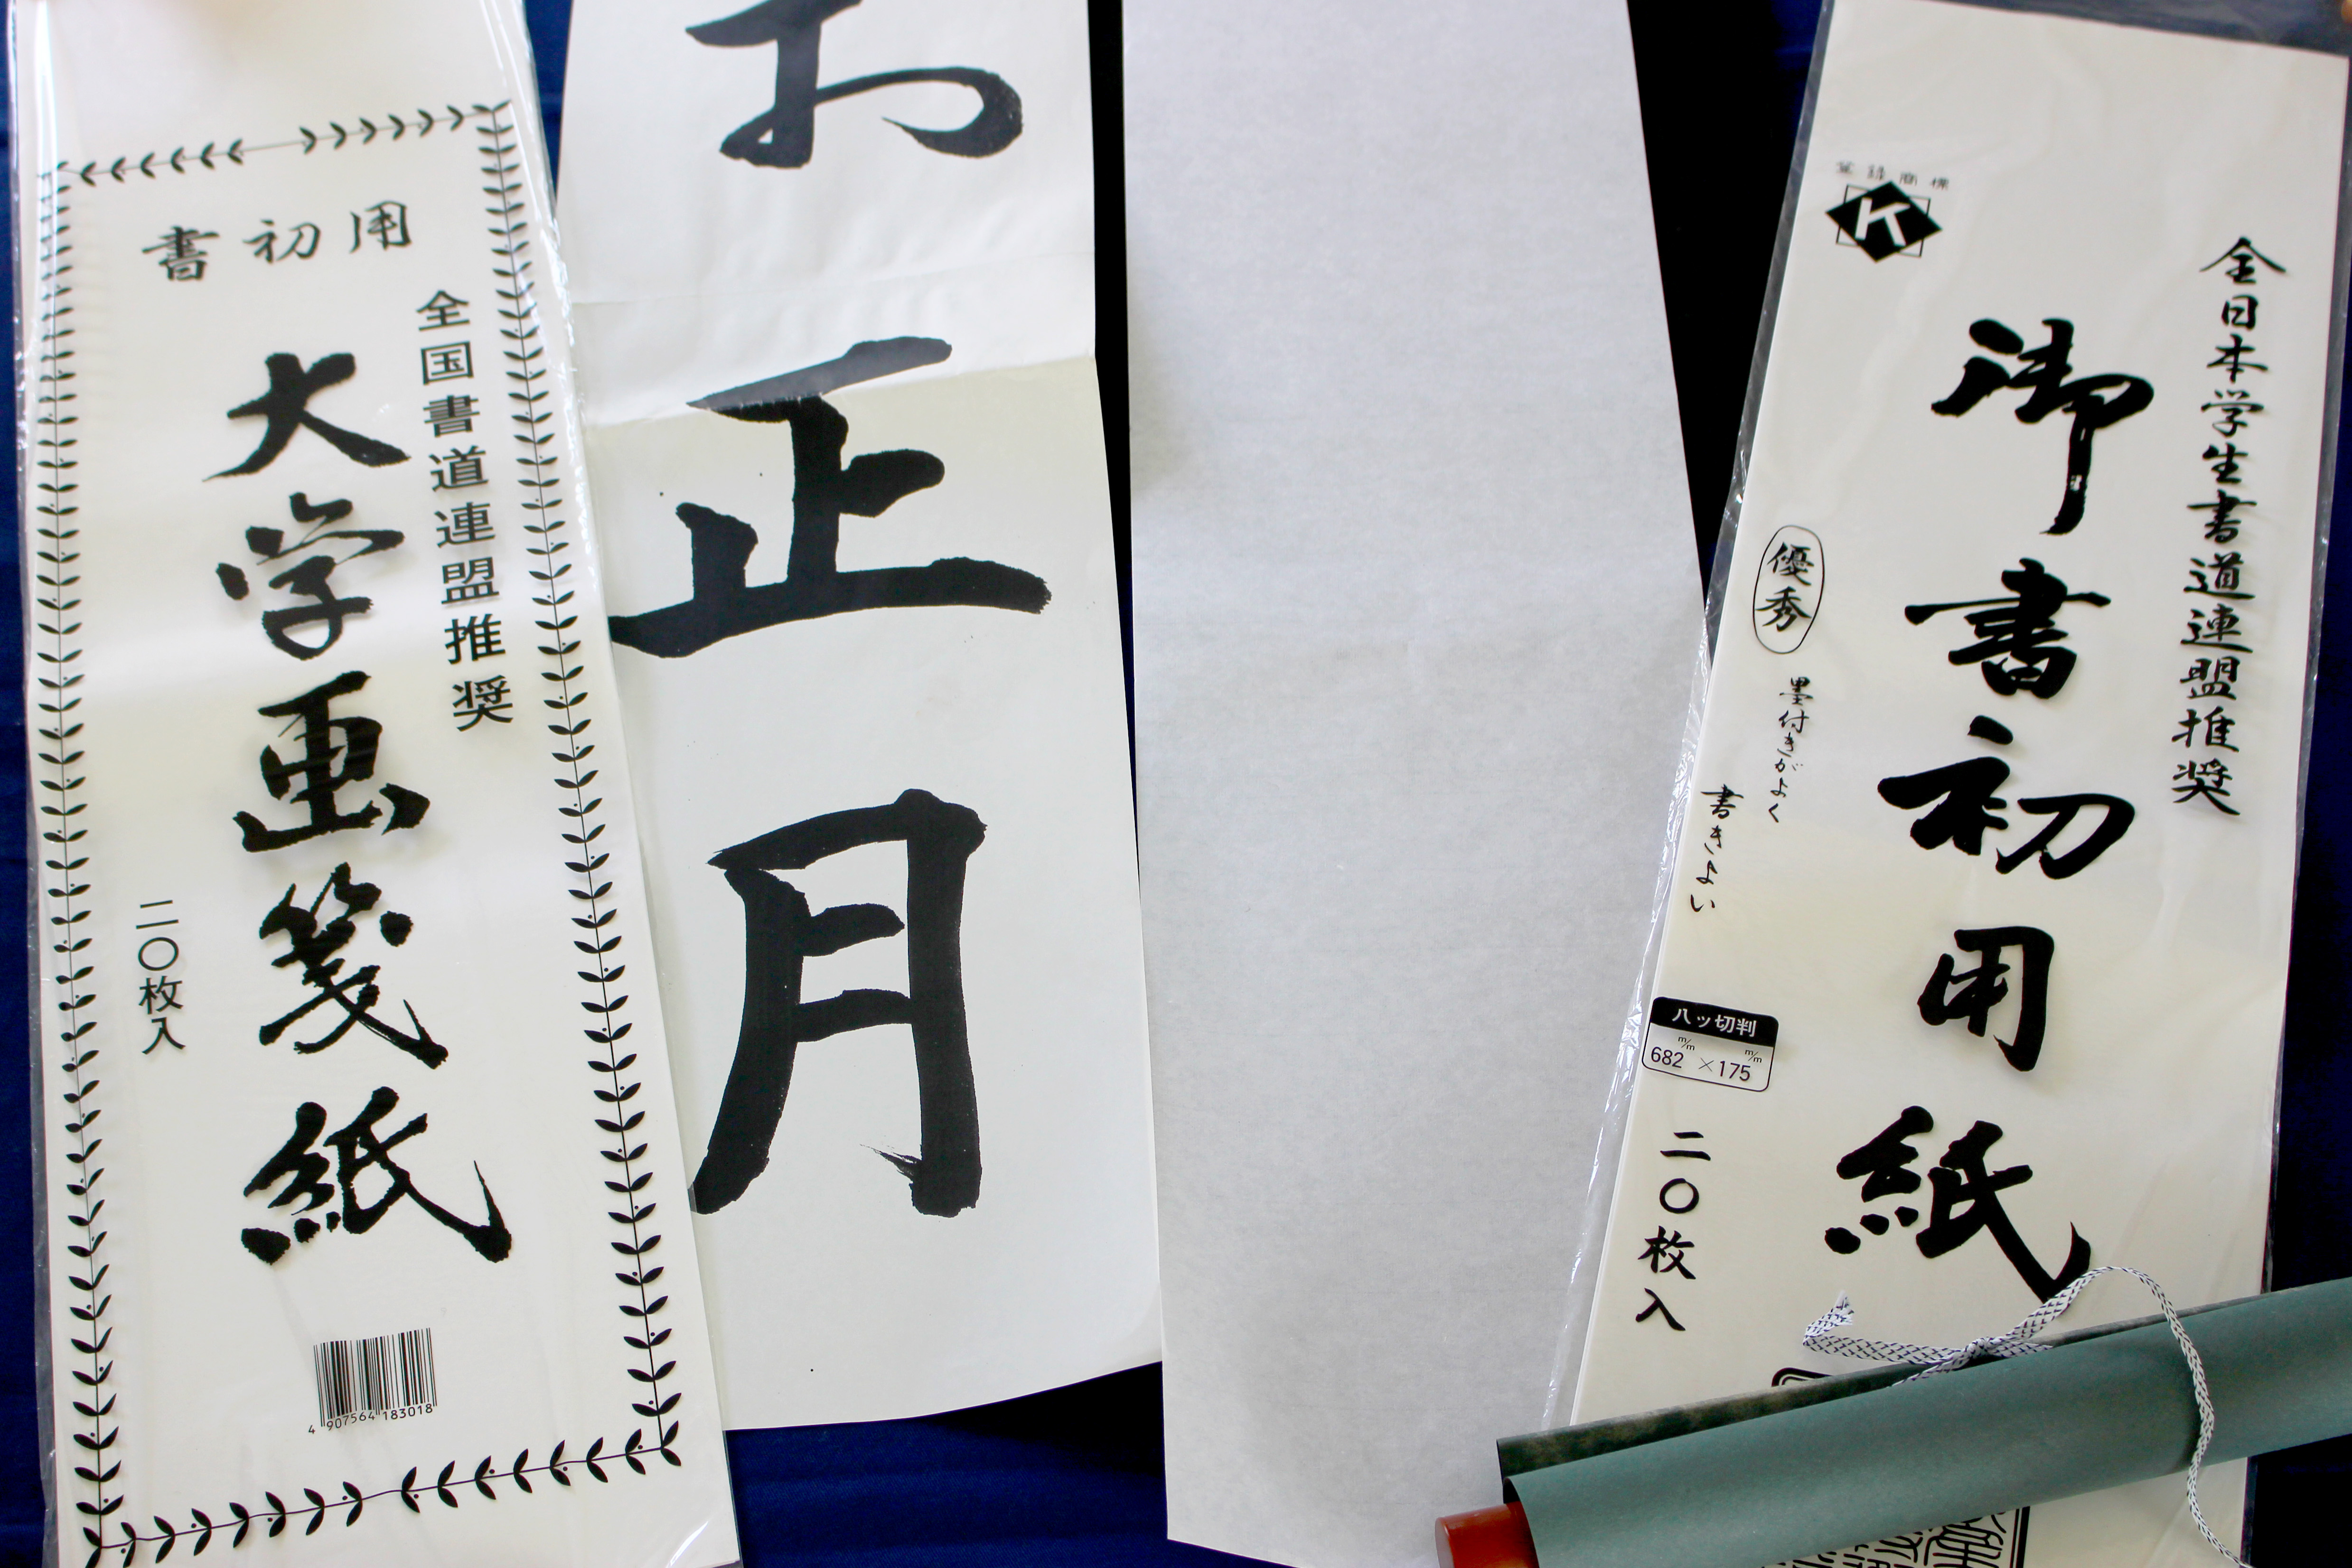 書初用
全国書道連盟推奨
大学画箋紙
二〇枚入
4 907564 183018
お正月
登録商標
K
全日本学生書道連盟推奨
御書初用紙
優秀
墨付きがよく
書きよい
八ッ切判
682m/m×175m/m
二〇枚入